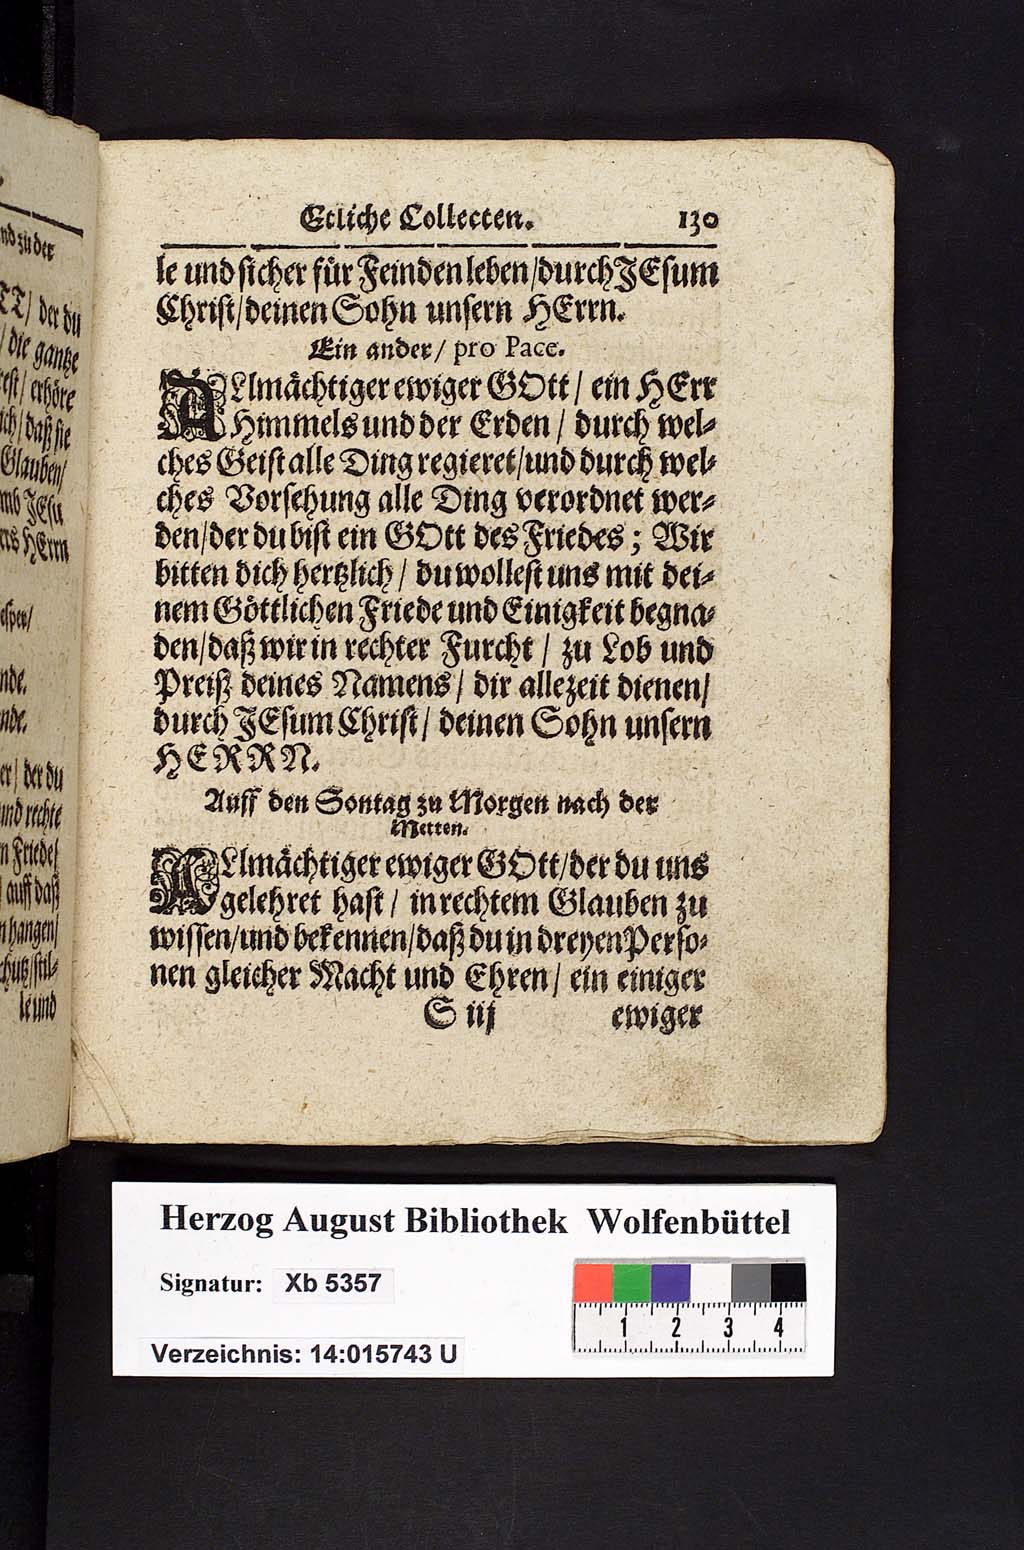 nd zu der
TT/ der du
/ die gantze
rest/ erhöre
ich/ daß sie
Glauben/
umb JEsu
ers HErrn
esper/
nde.
nde.
er/ der du
und rechte
n Friede/
auff daß
n hangen/
chutz/ stil-
le und
Etliche Collecten. 130
le und sicher für Feinden leben/durch JEsum
Christ/deinen Sohn unsern HErrn.
Ein ander/ pro Pace.
ALlmächtiger ewiger GOtt/ ein HErr
Himmels und der Erden/ durch wel-
ches Geist alle Ding regieret/und durch wel-
ches Vorsehung alle Ding verordnet wer-
den/der du bist ein GOtt des Friedes; Wir
bitten dich hertzlich/ du wollest uns mit dei-
nem Göttlichen Friede und Einigkeit begna-
den/daß wir in rechter Furcht/ zu Lob und
Preiß deines Namens/ dir allezeit dienen/
durch JEsum Christ/ deinen Sohn unsern
HERRN.
Auff den Sontag zu Morgen nach der
Metten.
ALlmächtiger ewiger GOtt/der du uns
gelehret hast/ in rechtem Glauben zu
wissen/und bekennen/daß du in dreyen Perso-
nen gleicher Macht und Ehren/ ein einiger
S iij ewiger
Herzog August Bibliothek Wolfenbüttel
Signatur: Xb 5357
Verzeichnis: 14:015743 U
1 2 3 4